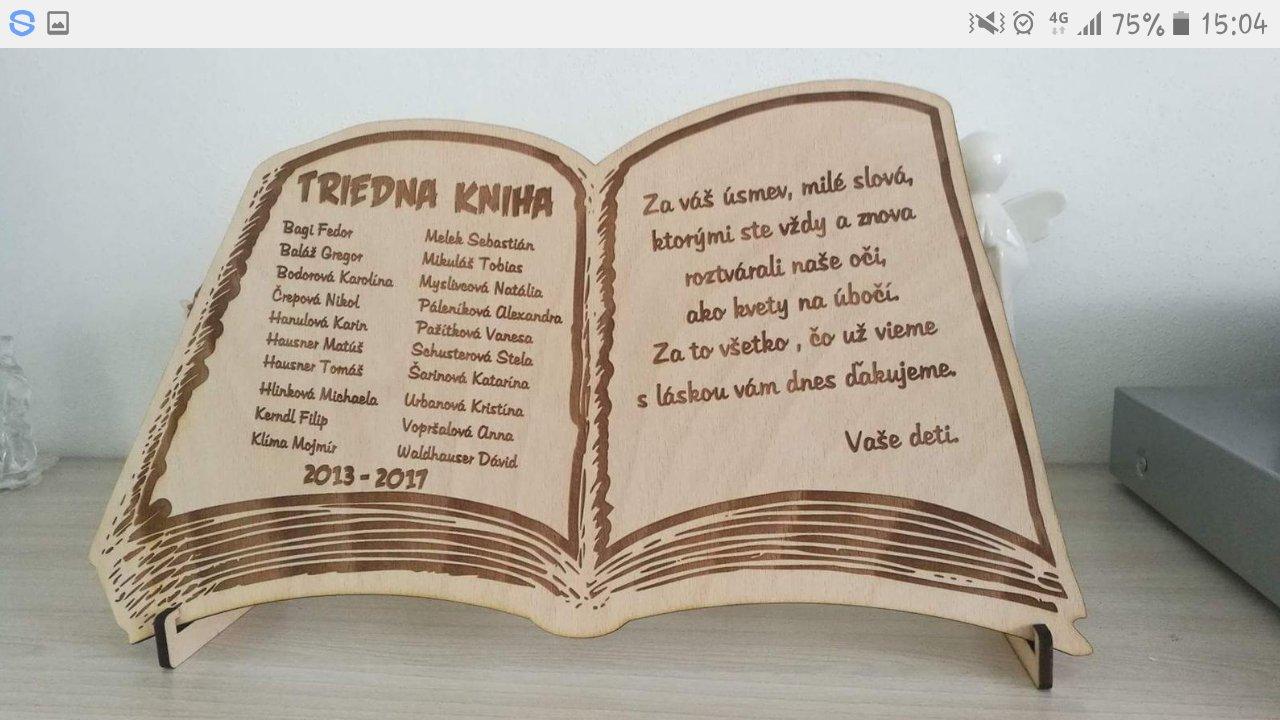 4G 75% 15:04
TRIEDNA KNIHA
Bagi Fedor
Baláž Gregor
Bodorová Karolína
Črepová Nikol
Hanulová Karin
Hausner Matúš
Hausner Tomáš
Hlinková Michaela
Kerndl Filip
Klíma Mojmír
Melek Sebastián
Mikuláš Tobias
Myslivcová Natália
Páleníková Alexandra
Pažítková Vanesa
Schusterová Stela
Šarinová Katarína
Urbanová Kristína
Vopršalová Anna
Waldhauser Dávid
2013 - 2017
Za váš úsmev, milé slová,
ktorými ste vždy a znova
roztvárali naše oči,
ako kvety na úbočí.
Za to všetko , čo už vieme
s láskou vám dnes ďakujeme.
Vaše deti.